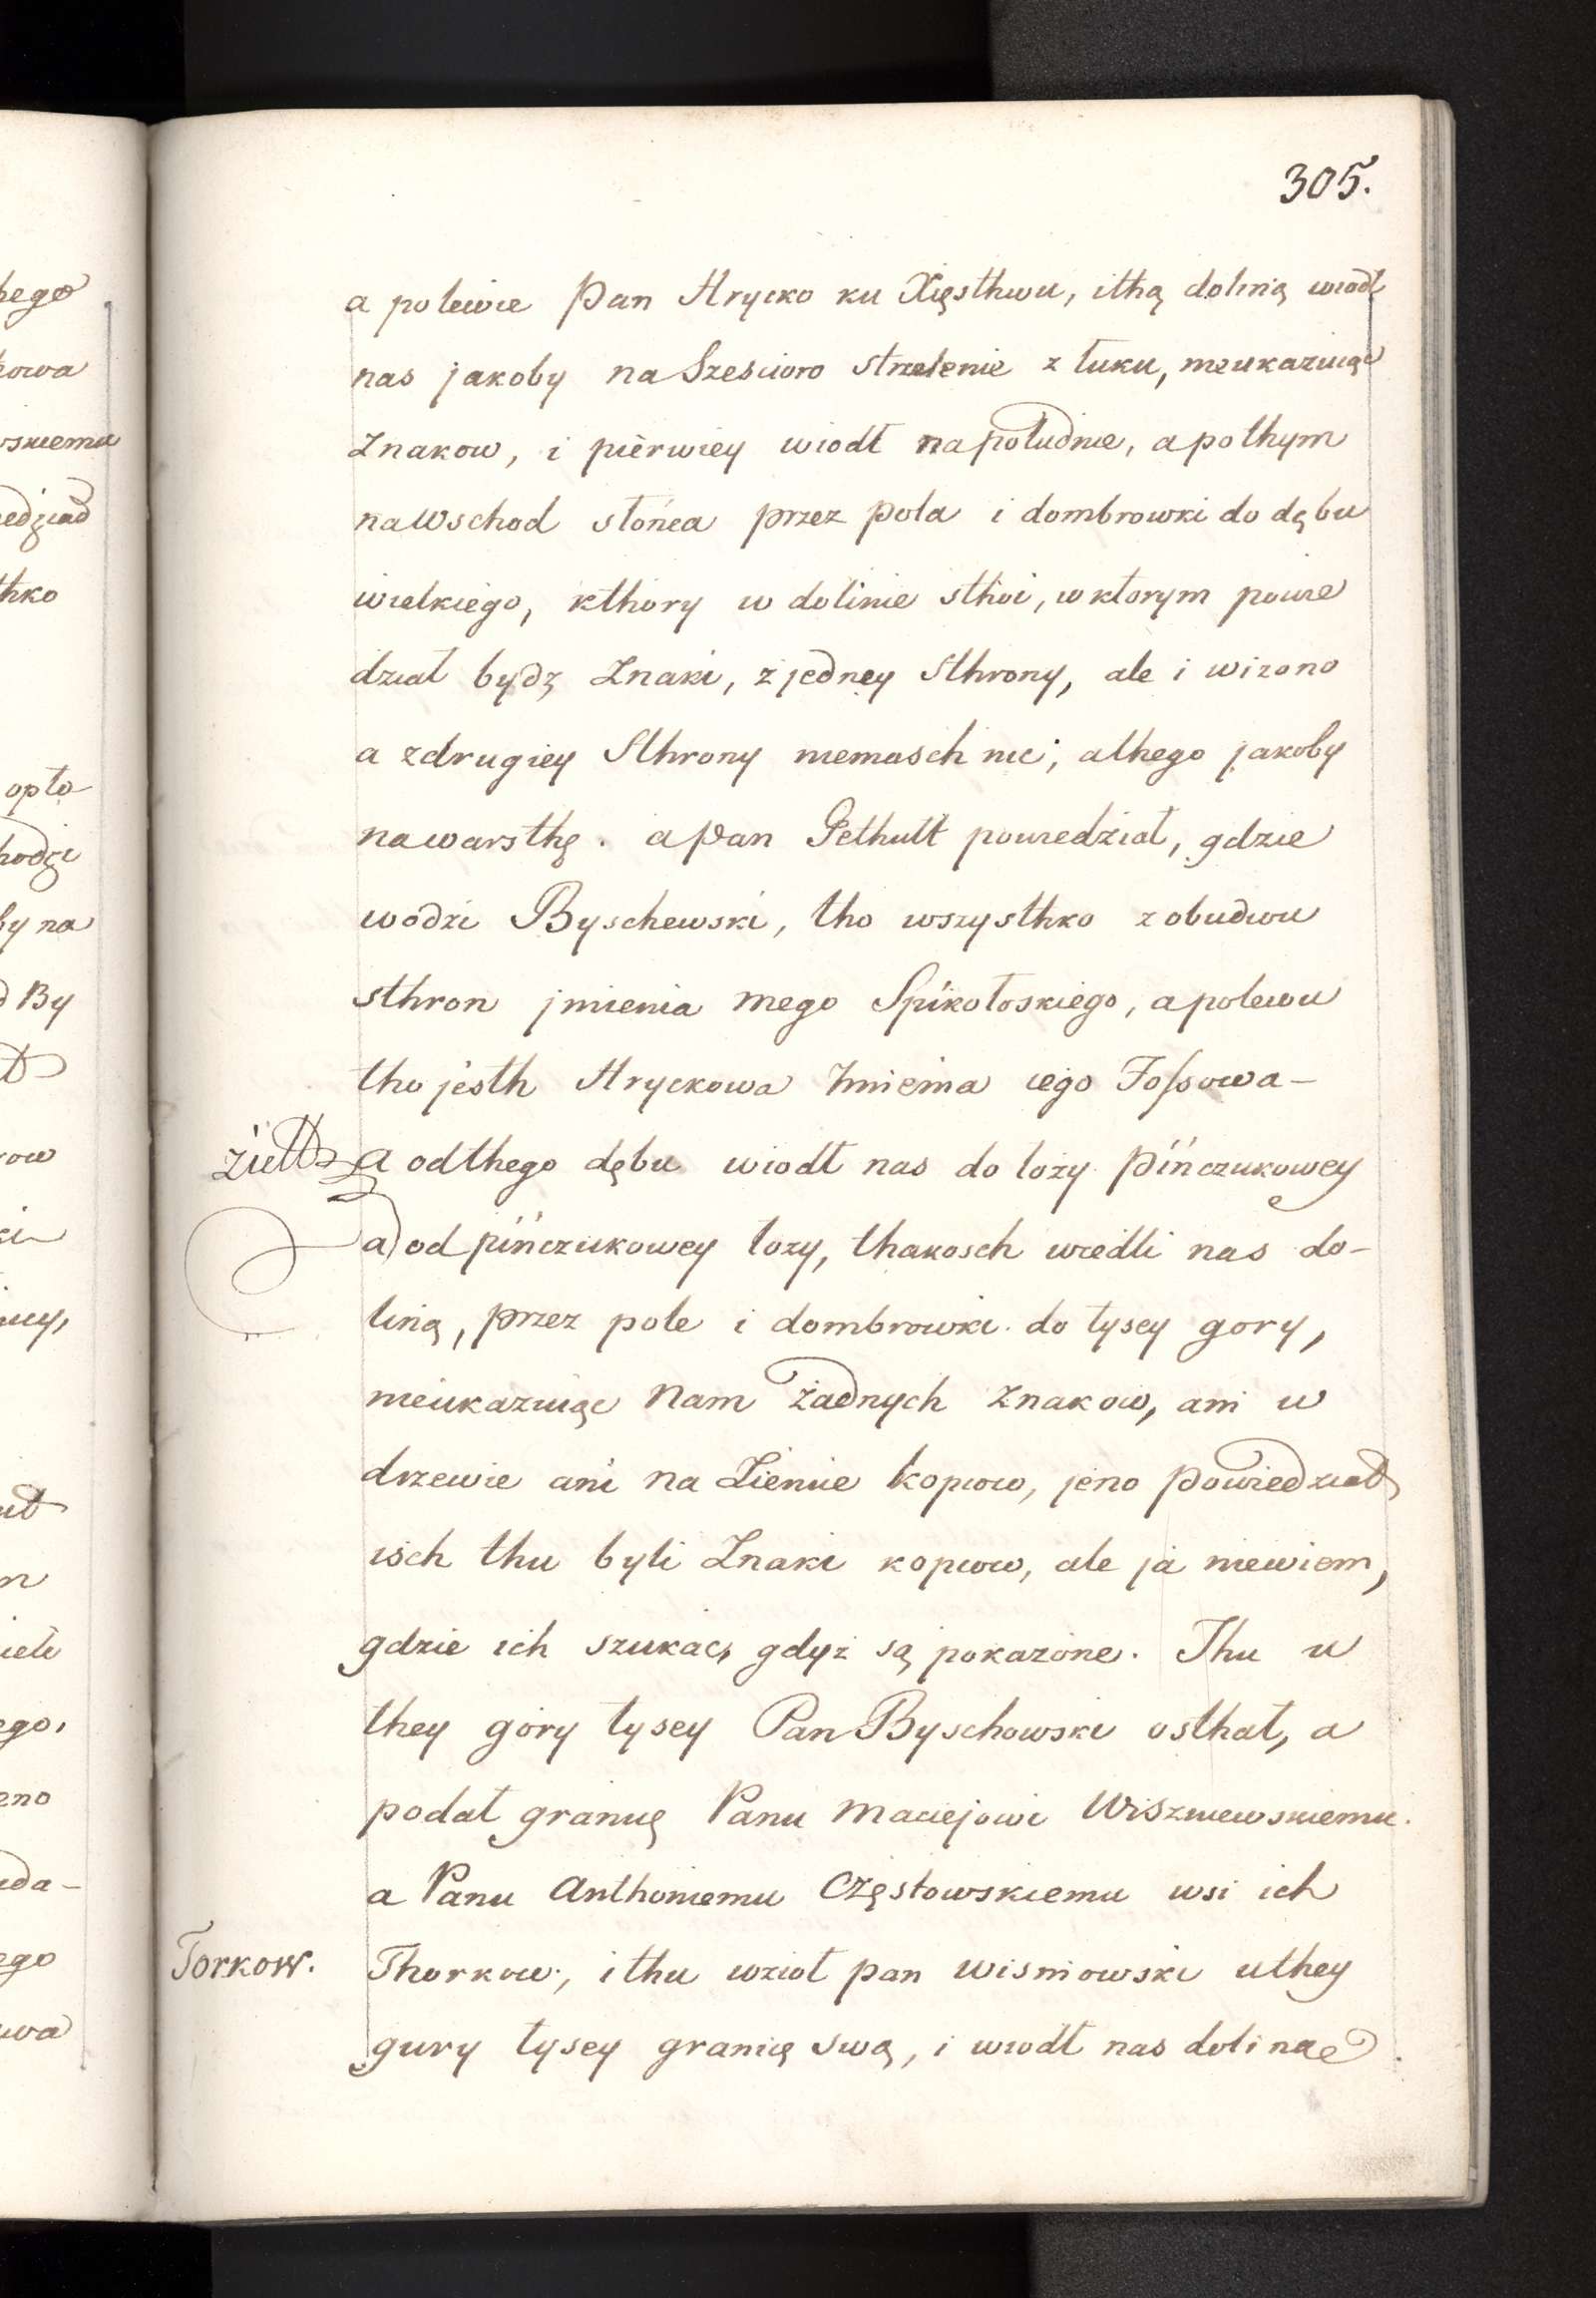 305.
a polewie Pan Hrycko ku Xięsthwu, ithą doliną wiodł
nas jakoby na Sześcioro strzelenie z łuku, nieukazuiąc
Znakow, i pièrwiey wiodł napołudnie, apothym
naWschod słońca przez pola i dombrowki do dębu
wielkiego, kthory w dolinie sthoi, w ktorym powie
dział bydz Znaki, z jedney Sthrony, ale i wizono
a zdrugiey Sthrony niemasch nic, athego jakoby
nawarsthę. a Pan Pethułt powiedział, gdzie
wodzi Byschewski, tho wszysthko z obudwu
sthron jmienia mego Spikołoskiego, apolewu
tho jesth Hryckowa Imienia iego Fossowa-
a odthego dębu wiodł nas do łozy Pińczukowey
a) od pińczukowey łozy, thakosch wiedli nas do-
liną, przez pole i dombrowki do łysey gory,
nieukazuiąc Nam żadnych Znakow, ani w
drzewie ani na Ziemie kopcow, jeno powiedział
isch thu byli Znaki kopcow, ale ja niewiem,
gdzie ich szukac, gdyż są pokażone. Thu u
they góry łysey Pan Byschowski osthał, a
podał granicę Panu Maciejowi Wiszniewskiemu.
a Panu Anthoniemu Częstowskiemu wsi ich
Torkow.
Thorkow, i thu wzioł pan wisniowski uthey
gury łysey granię swą, i wiodł nas dolinae